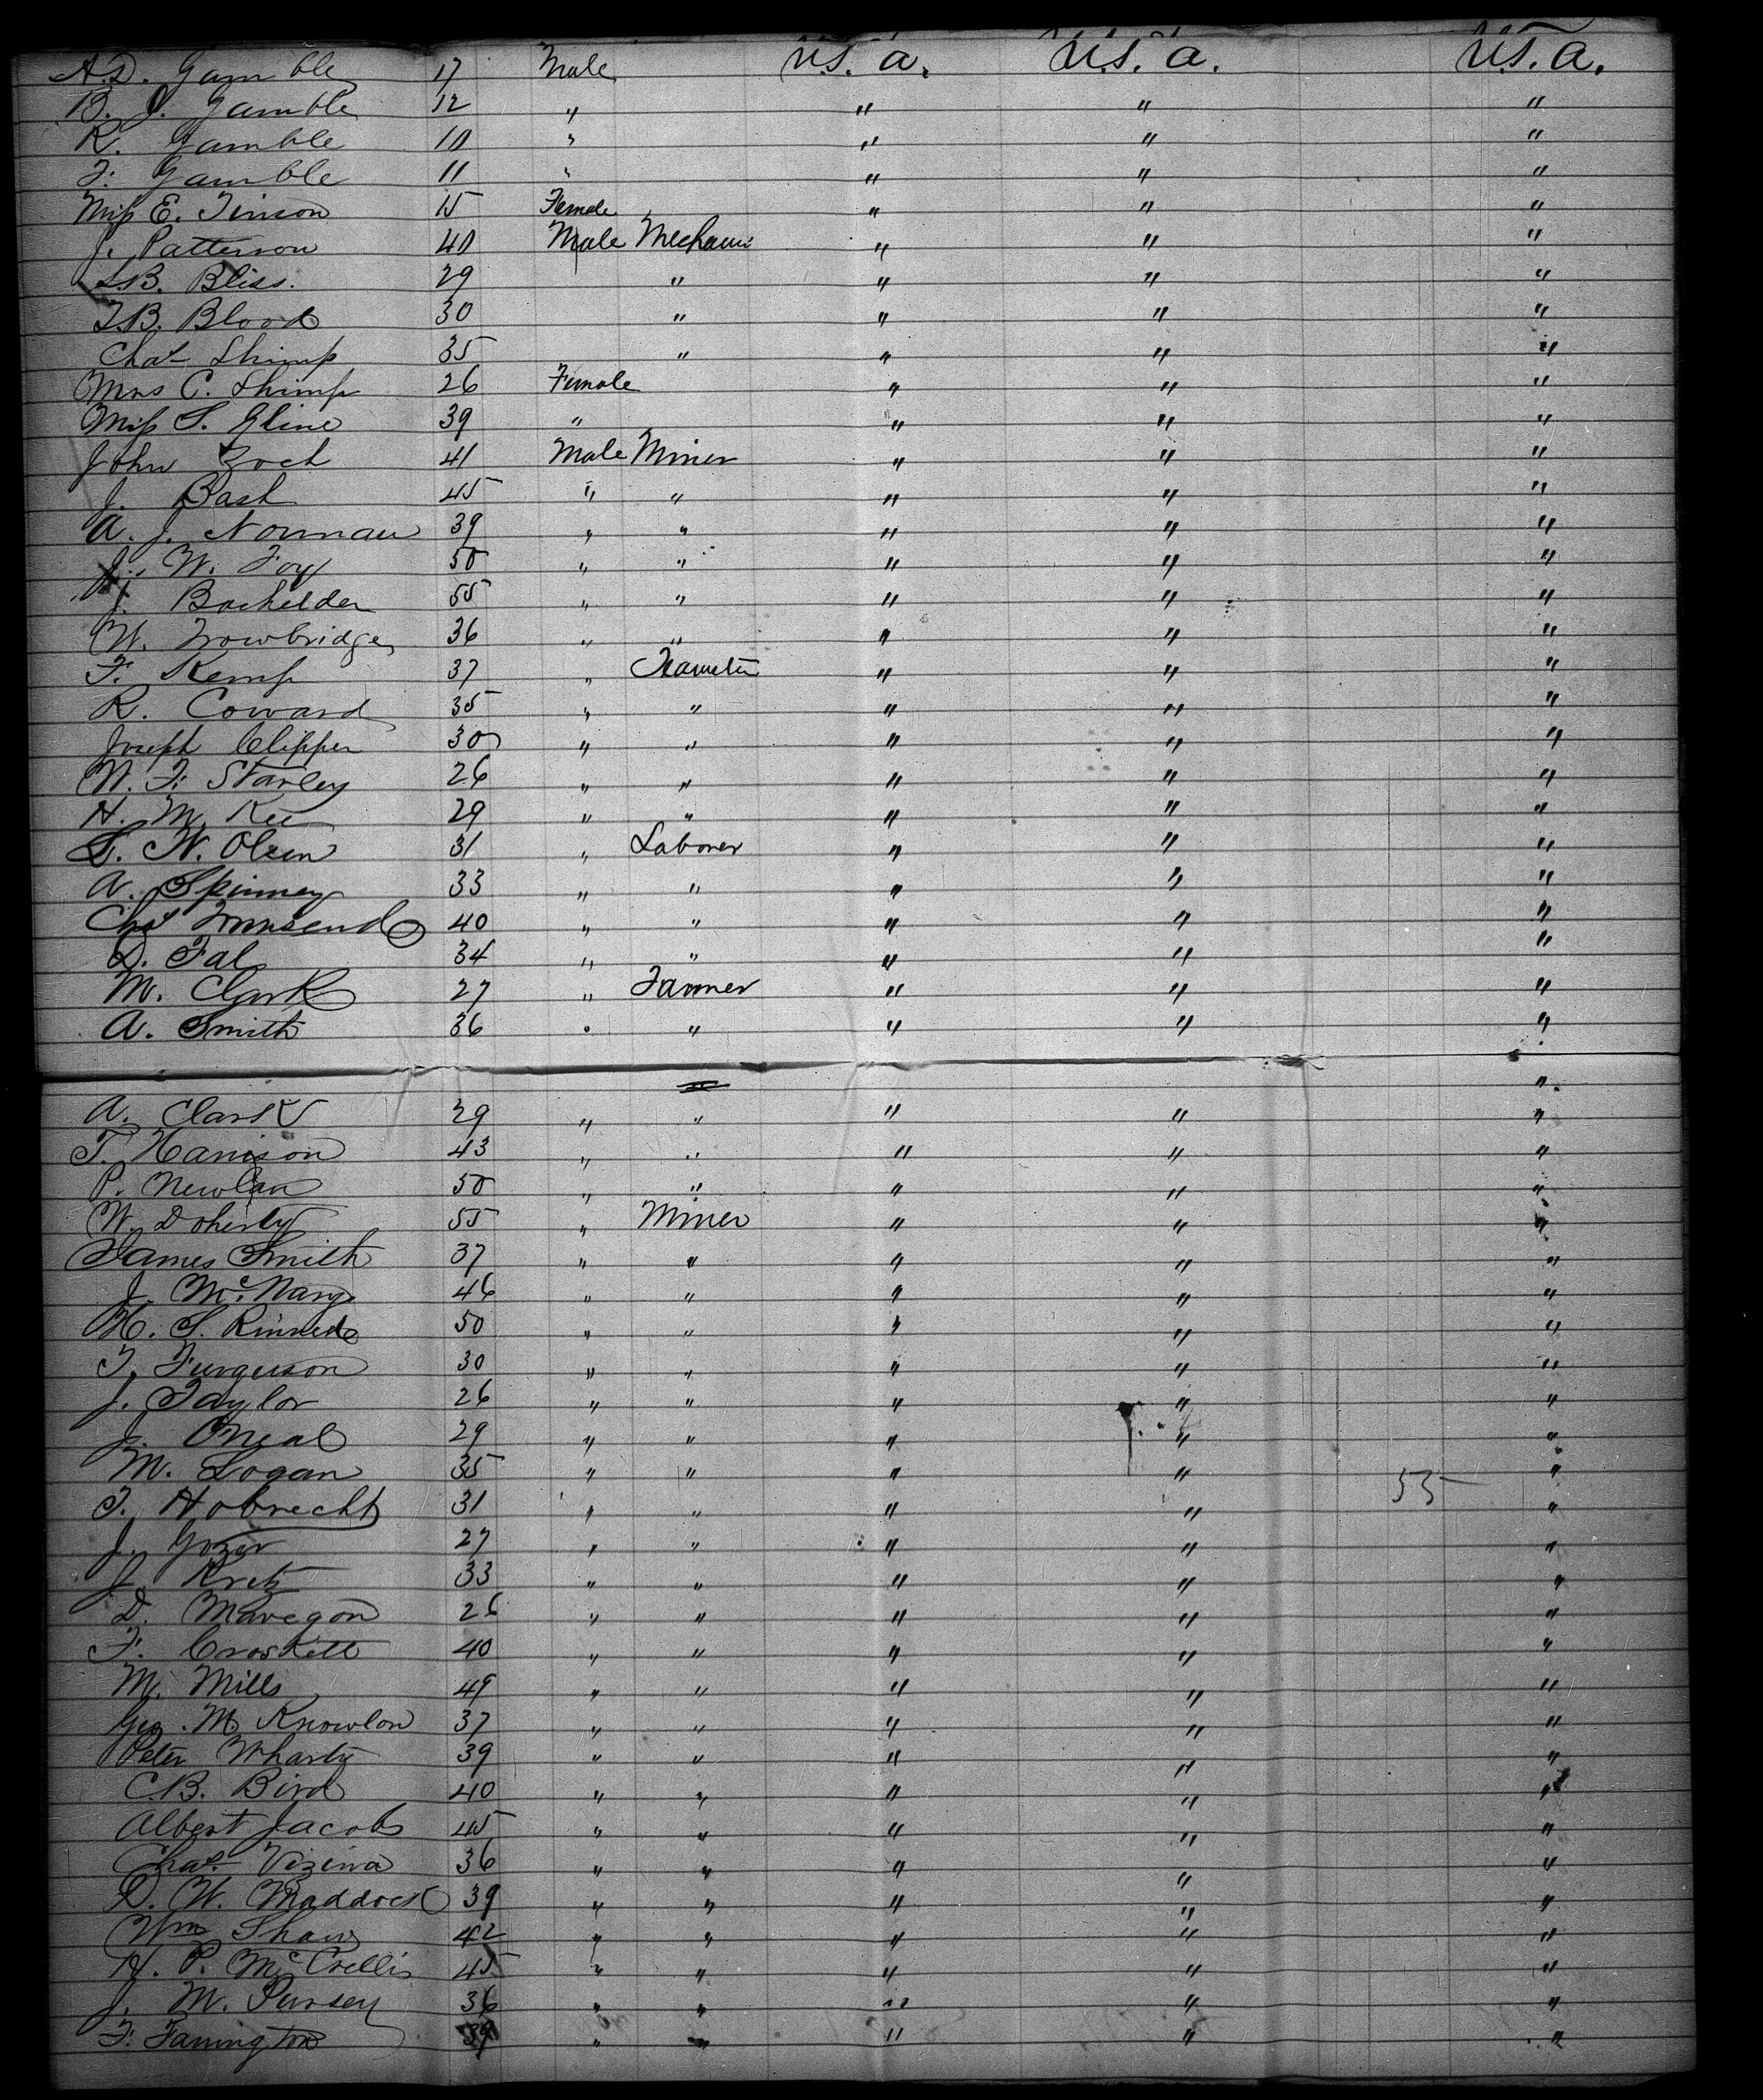 A.D. Gamble 17 Male U.S. a. U.S. a. U.S. a.
B. J. Gamble 12 " " " "
R. Gamble 10 " " " "
F. Gamble 11 " " " "
Miss E. Tinson 15 Female " " "
J. Patterson 40 Male Mechanic " " "
S.B. Bliss. 29 " " " "
T.B. Blood 30 " " " "
Chas Shimp 35 " " " "
Mrs C. Shimp 26 Female " " "
Miss S. Gline 39 " " " "
John Zoch 41 Male Miner " " "
J. Bash 45 " " " " "
A. J. Norman 39 " " " " "
J. W. Foy 50 " " " " "
J. Bachelder 55 " " " " "
W. Trowbridge 36 " " " " "
F. Kemp 37 " Teamster " " "
R. Coward 35 " " " " "
Joseph Clipper 30 " " " " "
W. F. Starley 26 " " " " "
H. M. Kee 29 " " " " "
L. W. Olsen 31 " Laborer " " "
A. Spinney 33 " " " " "
Chas Townsend 40 " " " " "
D. Fal 34 " " " " "
M. Clark 27 " Farmer " " "
A. Smith 36 " " " " "
"
A. Clark 29 " " " " "
T. Harrison 43 " " " " "
P. Newlan 50 " " " " "
W. Doherty 55 " Miner " " "
James Smith 37 " " " " "
J. McNary 46 " " " " "
H. S. Rinned 50 " " " " "
T. Furguson 30 " " " " "
J. Taylor 26 " " " " "
J. Oneal 29 " " " " "
M. Logan 35 " " " " 55 "
T. Hobrecht 31 " " " " "
J. Gozer 27 " " " " "
J. Kretz 33 " " " " "
D. Mavegon 26 " " " " "
F. Croskett 40 " " " " "
M. Mills 49 " " " " "
Geo. M Knowlon 37 " " " " "
Peter Wharty 39 " " " " "
C.B. Bird 40 " " " " "
Albert Jacobs 45 " " " " "
Chas. Vizina 36 " " " " "
D. W. Maddock 39 " " " " "
Wm Shaw 42 " " " " "
H. P. McCrellis 45 " " " " "
J. M. Pursey 36 " " " " "
F. Farrington 39 " " " " "